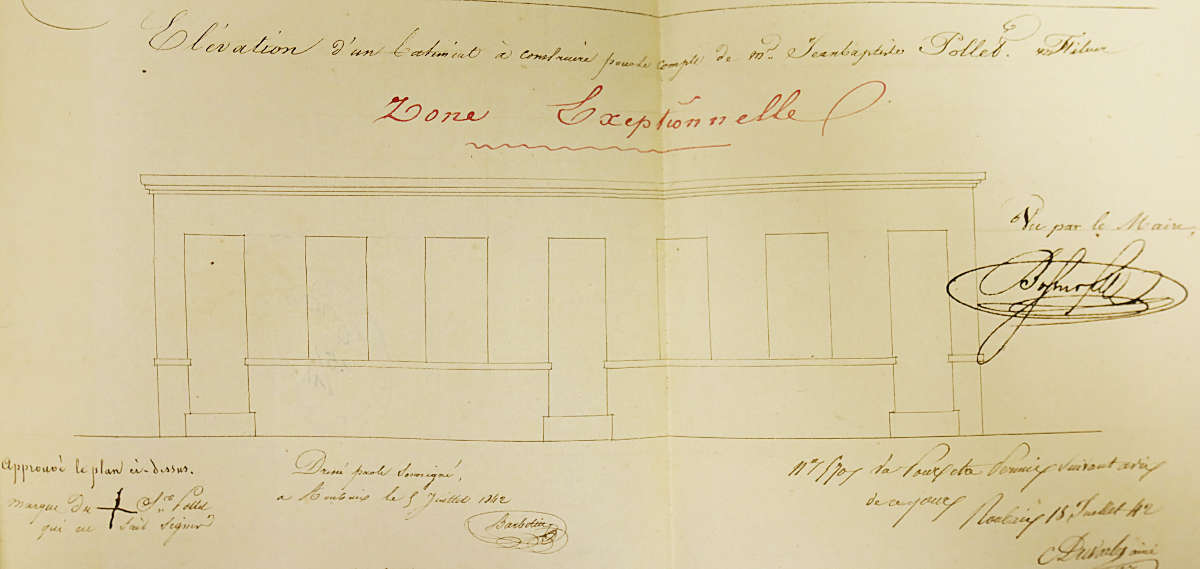 Elévation d'un batiment à construire pour le compte de mr. Jeanbaptiste Pollet. Fileur
Zone Exeptionnelle
Vu par le Maire,
Approuvé le plan ci-dessus.
marque du + Sr. Pollet
qui ne sait signer
Dressé par le soussigné,
a Roubaix le 5 Juillet 1842
Barbotin
suivant avis
de ce jour
Roubaix 15 Juillet 42